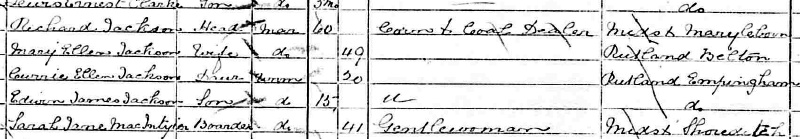 Ernest Clarke Son do 3mo do
Richard Jackson Head Mar 60 Corn & Coal Dealer Middx Marylebon
Mary Ellen Jackson Wife do 49 Rutland Belton
Ellen Jackson Daur Unm 20 Rutland Empingham
Edwin James Jackson Son do 15 do
Sarah Jane MacIntyer Boarder do 41 Gentlewoman Middx